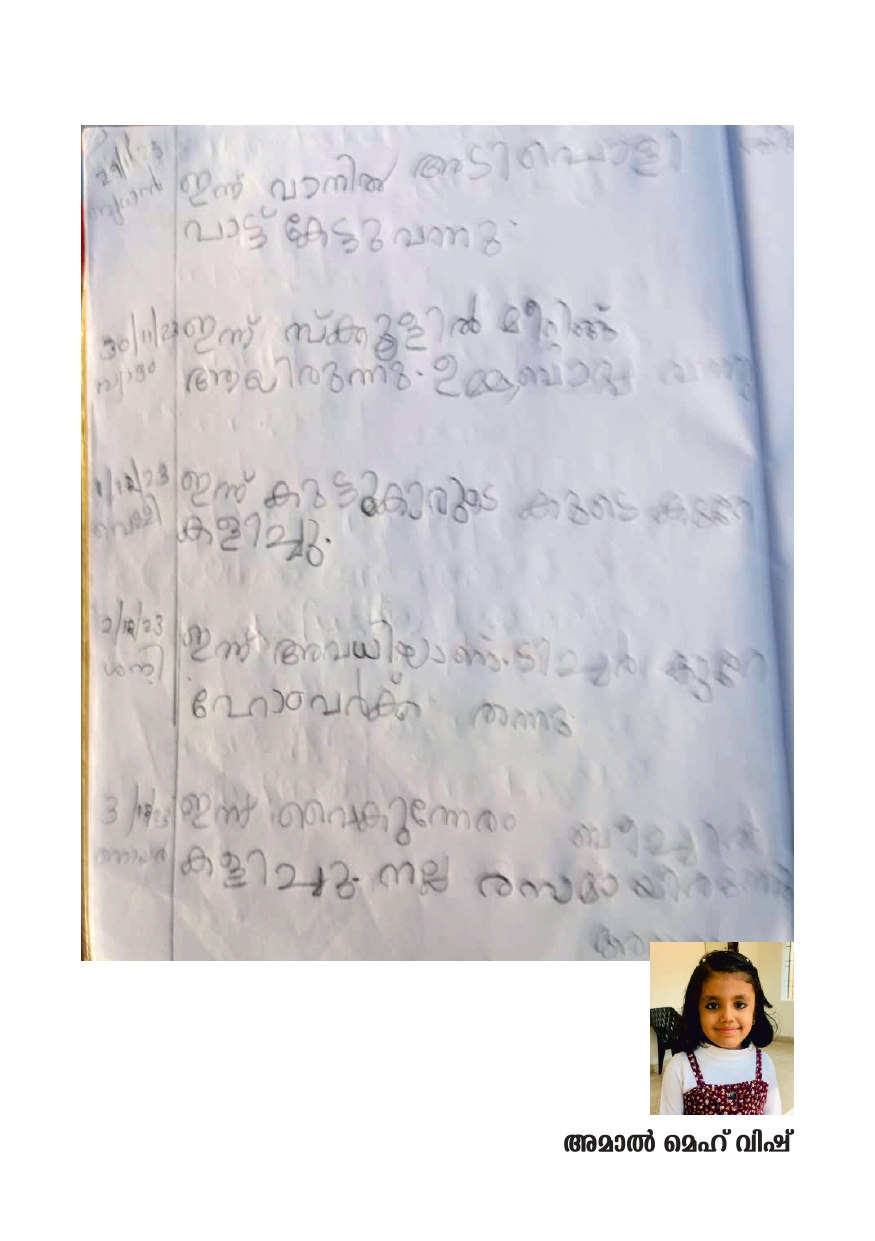 29/11/23 ഇന്ന് വാനിൽ അടിപൊളി
ബുധൻ പാട്ട് കേട്ടു വന്നു.
30/11/23 ഇന്ന് സ്ക്കൂളിൽ മീറ്റിങ്ങ്
വ്യാഴം ആയിരുന്നു. ഉമ്മ വന്നു
1/12/23 ഇന്ന് കുട്ടുകാരുടെ കുടെ
വെള്ളി കളിച്ചു.
2/12/23 ഇന്ന് അവധിയാണ്. ടീച്ചർ കുറേ
ശനി ഹോംവർക്ക് തന്നു
3/12/23 ഇന്ന് വൈകുന്നേരം ബീച്ചിൽ
ഞായർ കളിച്ചു. നല്ല രസമായിരുന്നു
അമാൽ മെഹ് വിഷ്